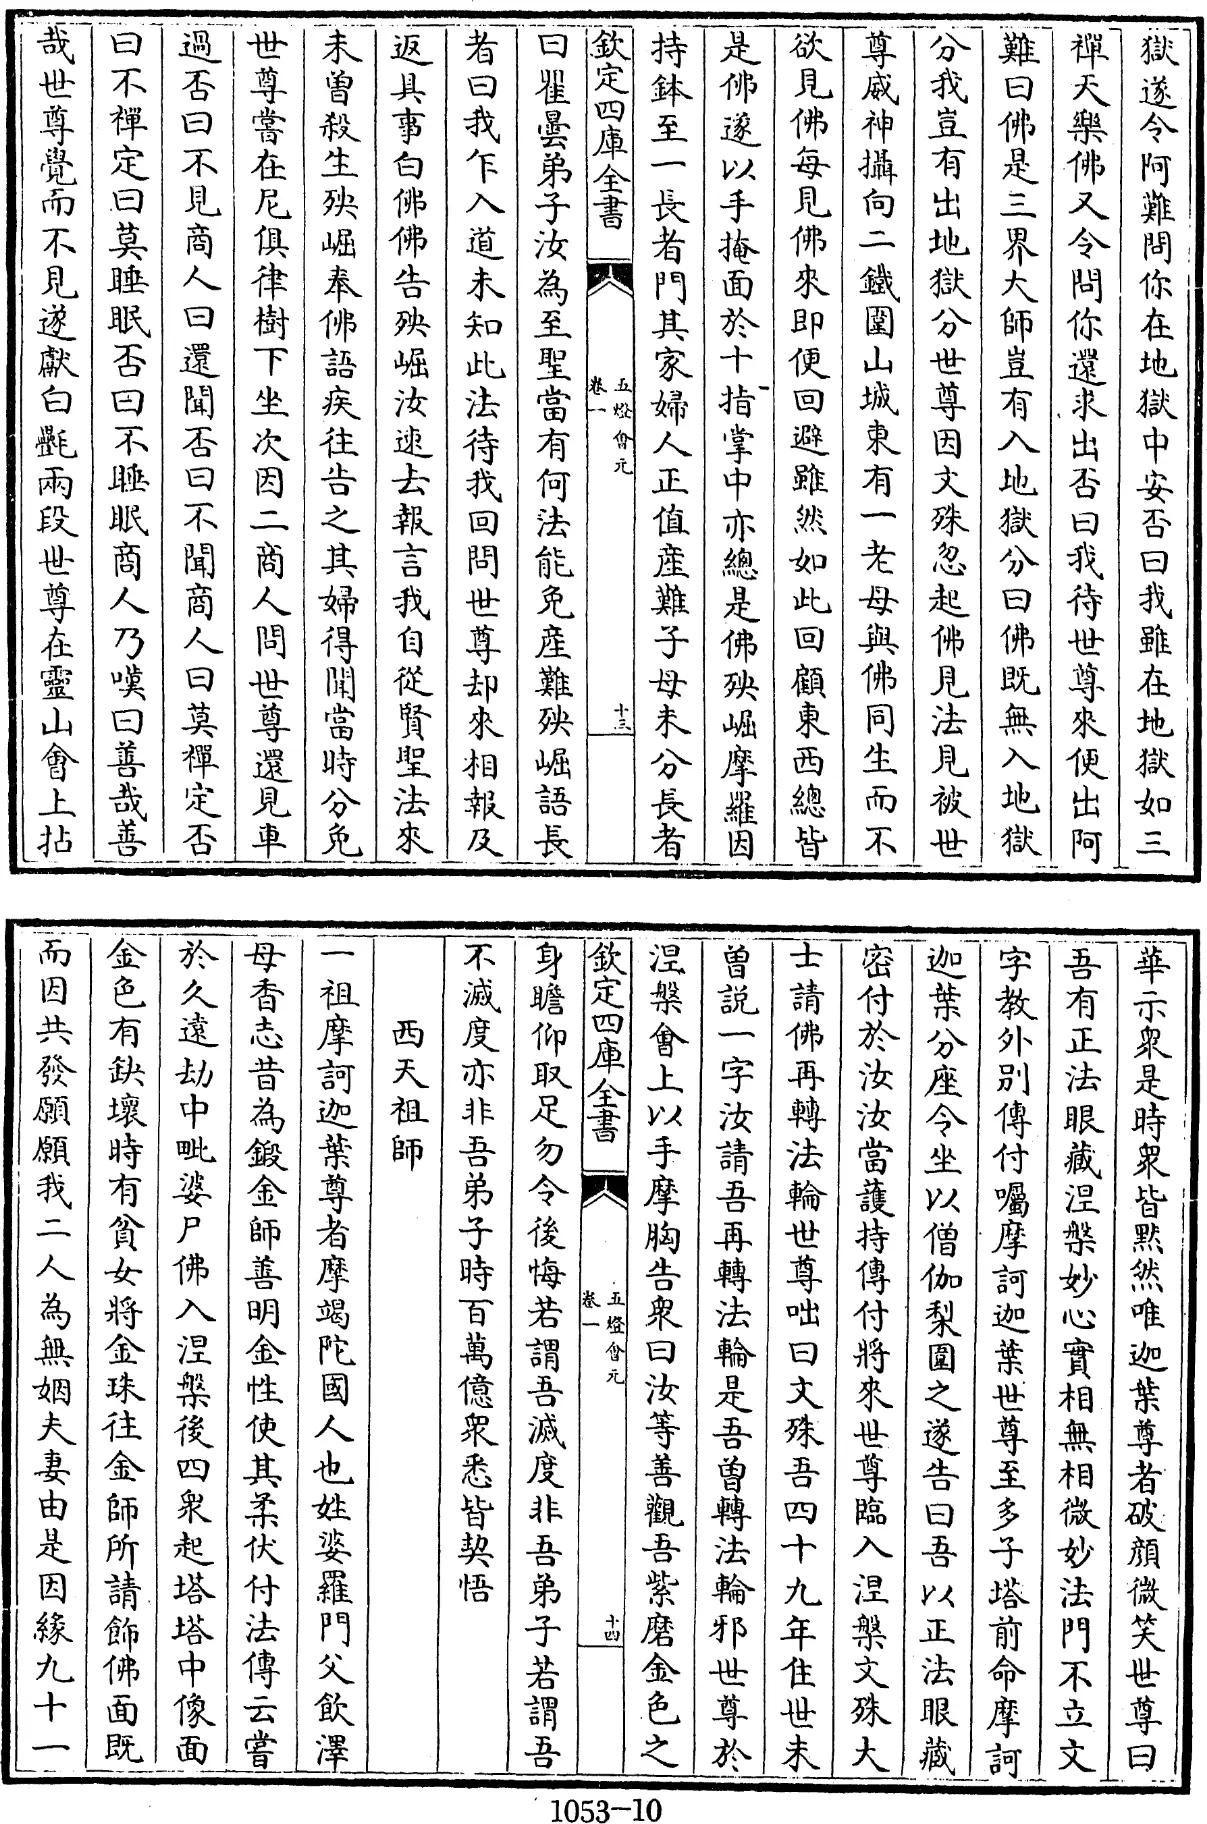 獄遂令阿難問你在地獄中安否曰我雖在地獄如三
禪天樂佛又令問你還求出否曰我待世尊來便出阿
難曰佛是三界大師豈有入地獄分曰佛既無入地獄
分我豈有出地獄分世尊因文殊忽起佛見法見被世
尊威神攝向二鐵圍山城東有一老母與佛同生而不
欲見佛每見佛來即便回避雖然如此回顧東西總皆
是佛遂以手掩面於十指掌中亦總是佛殃崛摩羅因
持鉢至一長者門其家婦人正值產難子母未分長者
欽定四庫全書
五燈會元
卷一
十三
曰瞿曇弟子汝為至聖當有何法能免產難殃崛語長
者曰我乍入道未知此法待我回問世尊却來相報及
返具事白佛佛告殃崛汝速去報言我自從賢聖法來
未曾殺生殃崛奉佛語疾往告之其婦得聞當時分免
世尊嘗在尼俱律樹下坐次因二商人問世尊還見車
過否曰不見商人曰還聞否曰不聞商人曰莫禪定否
曰不禪定曰莫睡眠否曰不睡眠商人乃嘆曰善哉善
哉世尊覺而不見遂獻白㲲兩段世尊在靈山會上拈
華示衆是時衆皆默然唯迦葉尊者破顏微笑世尊曰
吾有正法眼藏涅槃妙心實相無相微妙法門不立文
字教外別傳付囑摩訶迦葉世尊至多子塔前命摩訶
迦葉分座令坐以僧伽梨圍之遂告曰吾以正法眼藏
密付於汝汝當護持傳付將來世尊臨入涅槃文殊大
士請佛再轉法輪世尊咄曰文殊吾四十九年住世未
曾說一字汝請吾再轉法輪是吾曾轉法輪邪世尊於
涅槃會上以手摩胸告衆曰汝等善觀吾紫磨金色之
欽定四庫全書
五燈會元
卷一
十四
身瞻仰取足勿令後悔若謂吾滅度非吾弟子若謂吾
不滅度亦非吾弟子時百萬億衆悉皆契悟
西天祖師
一祖摩訶迦葉尊者摩竭陀國人也姓婆羅門父飲澤
母香志昔為鍛金師善明金性使其柔伏付法傳云嘗
於久遠劫中毗婆尸佛入涅槃後四衆起塔塔中像面
金色有缺壞時有貧女將金珠往金師所請飾佛面既
而因共發願願我二人為無姻夫妻由是因緣九十一
1053-10